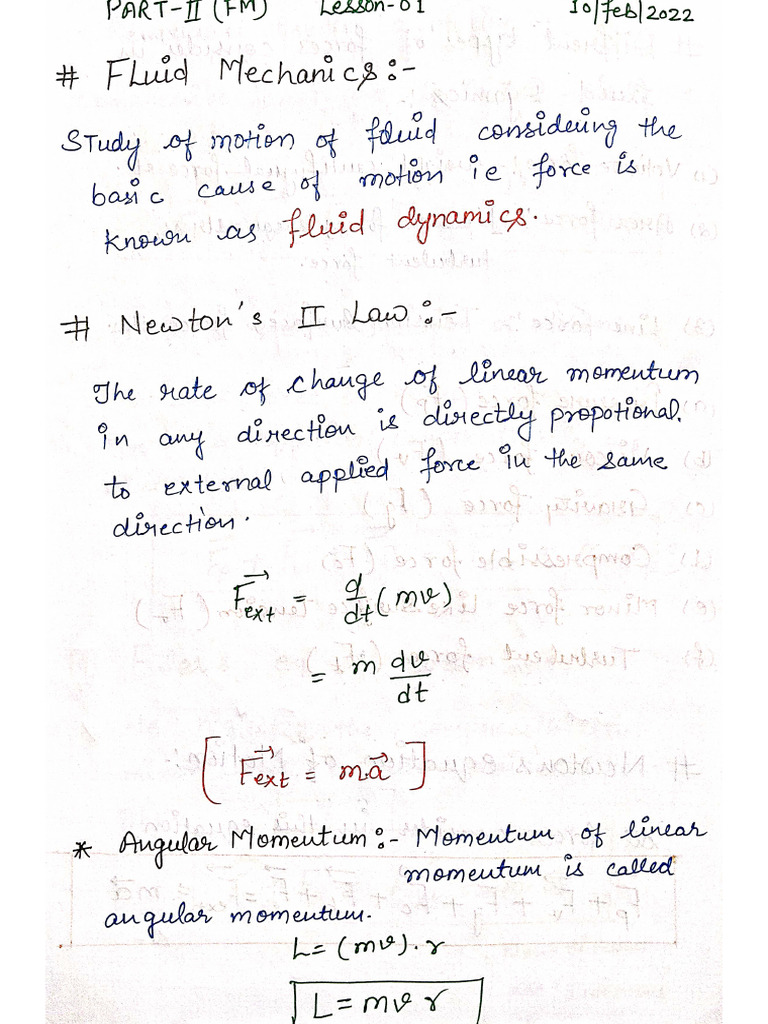 PART-II (FM) Lesson-01 10/feb/2022
# Fluid Mechanics:-
Study of motion of fluid considering the
basic cause of motion ie force is
known as fluid dynamics.
# Newton's II Law:-
The rate of change of linear momentum
in any direction is directly propotional.
to external applied force in the same
direction.
F⃗ext = d/dt (mv)
= m dv/dt
[F⃗ext = ma⃗]
* Angular Momentum:- Momentum of linear
momentum is called
angular momentum.
L = (mv).r
L = mvr